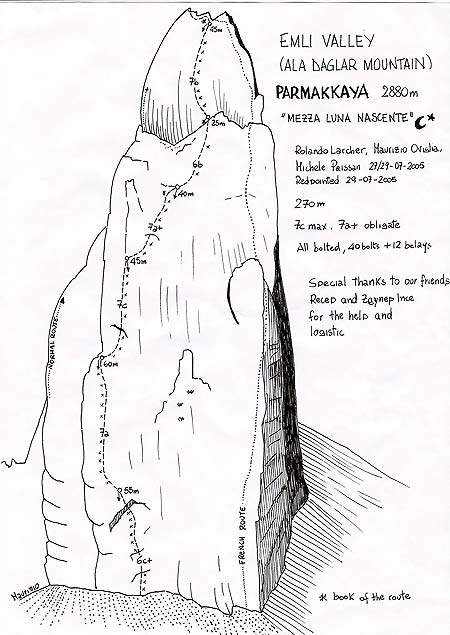 EMLI VALLEY
(ALA DAGLAR MOUNTAIN)
PARMAKKAYA 2880m
"MEZZA LUNA NASCENTE"
Rolando Larcher, Maurizio Oviglia,
Michele Paissan 27/29-07-2005
Redpointed 29-07-2005
270m
7c max. 7a+ obligate
All bolted, 40bolts + 12 belays
Special thanks to our friends
Recep and Zeynep Ince
for the help and
logistic
45m
7b
25m
6b
40m
7a+
45m
7c
60m
7a
55m
6c+
NORMAL ROUTE
FRENCH ROUTE
MAURIZIO
* book of the route